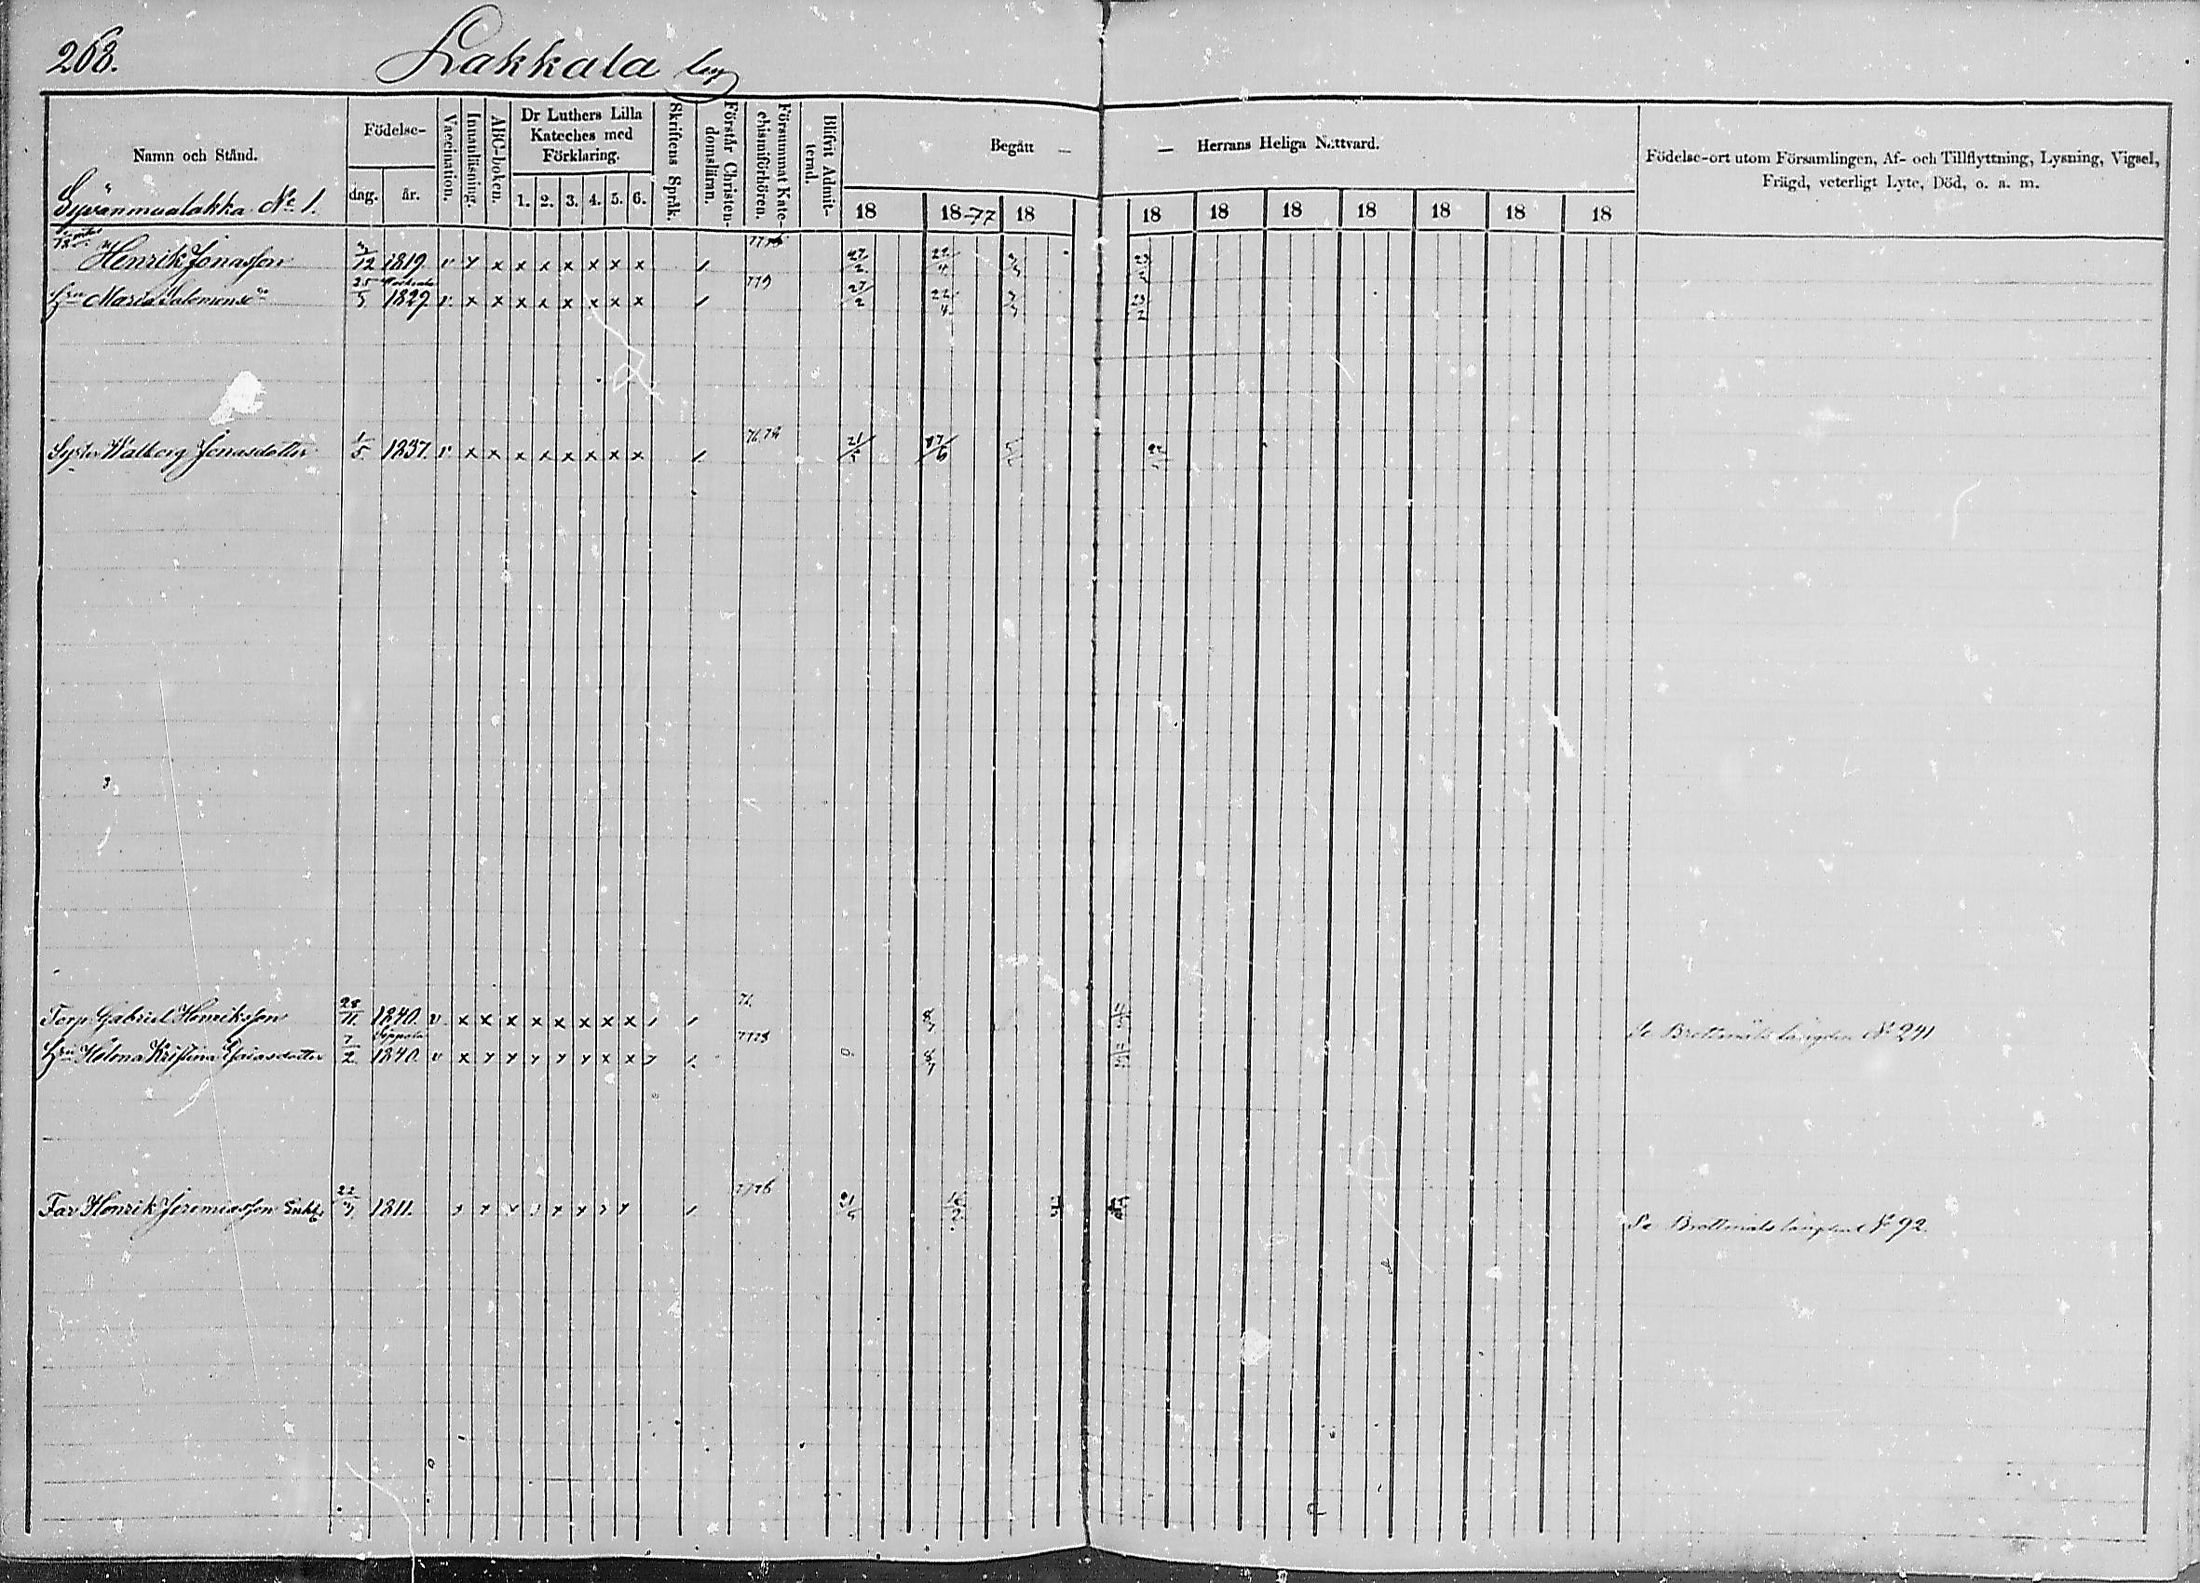 268. Lakkala by
Namn och Stånd.
Födelse-
dag. år.
Vaccination.
Innanläsning.
ABC-boken.
Dr Luthers Lilla
Kateches med
Förklaring.
1. 2. 3. 4. 5. 6.
Skriftens Språk.
Förstår Christen-
domsläran.
Försummat Kate-
chismiförhören.
Blifvit Admit-
terad.
Begått — — Herrans Heliga Nattvard.
18 1877 18 18 18 18 18 18 18 18
Födelse-ort utom Församlingen, Af- och Tillflyttning, Lysning, Vigsel,
Frägd, veterligt Lyte, Död, o. a. m.
Syvänmaalakka No 1.
Henrik Jonasson 12 1819. v x x x x x x x x / 27/2 22/4 23/2
25
Hru Maria Salomonsdr 5 1829. v x x x x x x x x / 779 27/2 22/4 23/2
Syster Walborg Jonasdotter 1/5 1837. v x x x x x x x x / 76,78 21/5 17/6
Torp. Gabriel Henriksson 28/11 1840. v x x x x x x x x / / 76. 8/7
Hru Helena Kristina Esaiasdotter 7/2 1840. v x x x x x x x x / / 7778 8/7 Se Brottmåls längden No 241
Far Henrik Jeremiasson Enkl. 22 1811. x x x x x x x x / 7778 21/5 Se Brottmåls längden No 92.